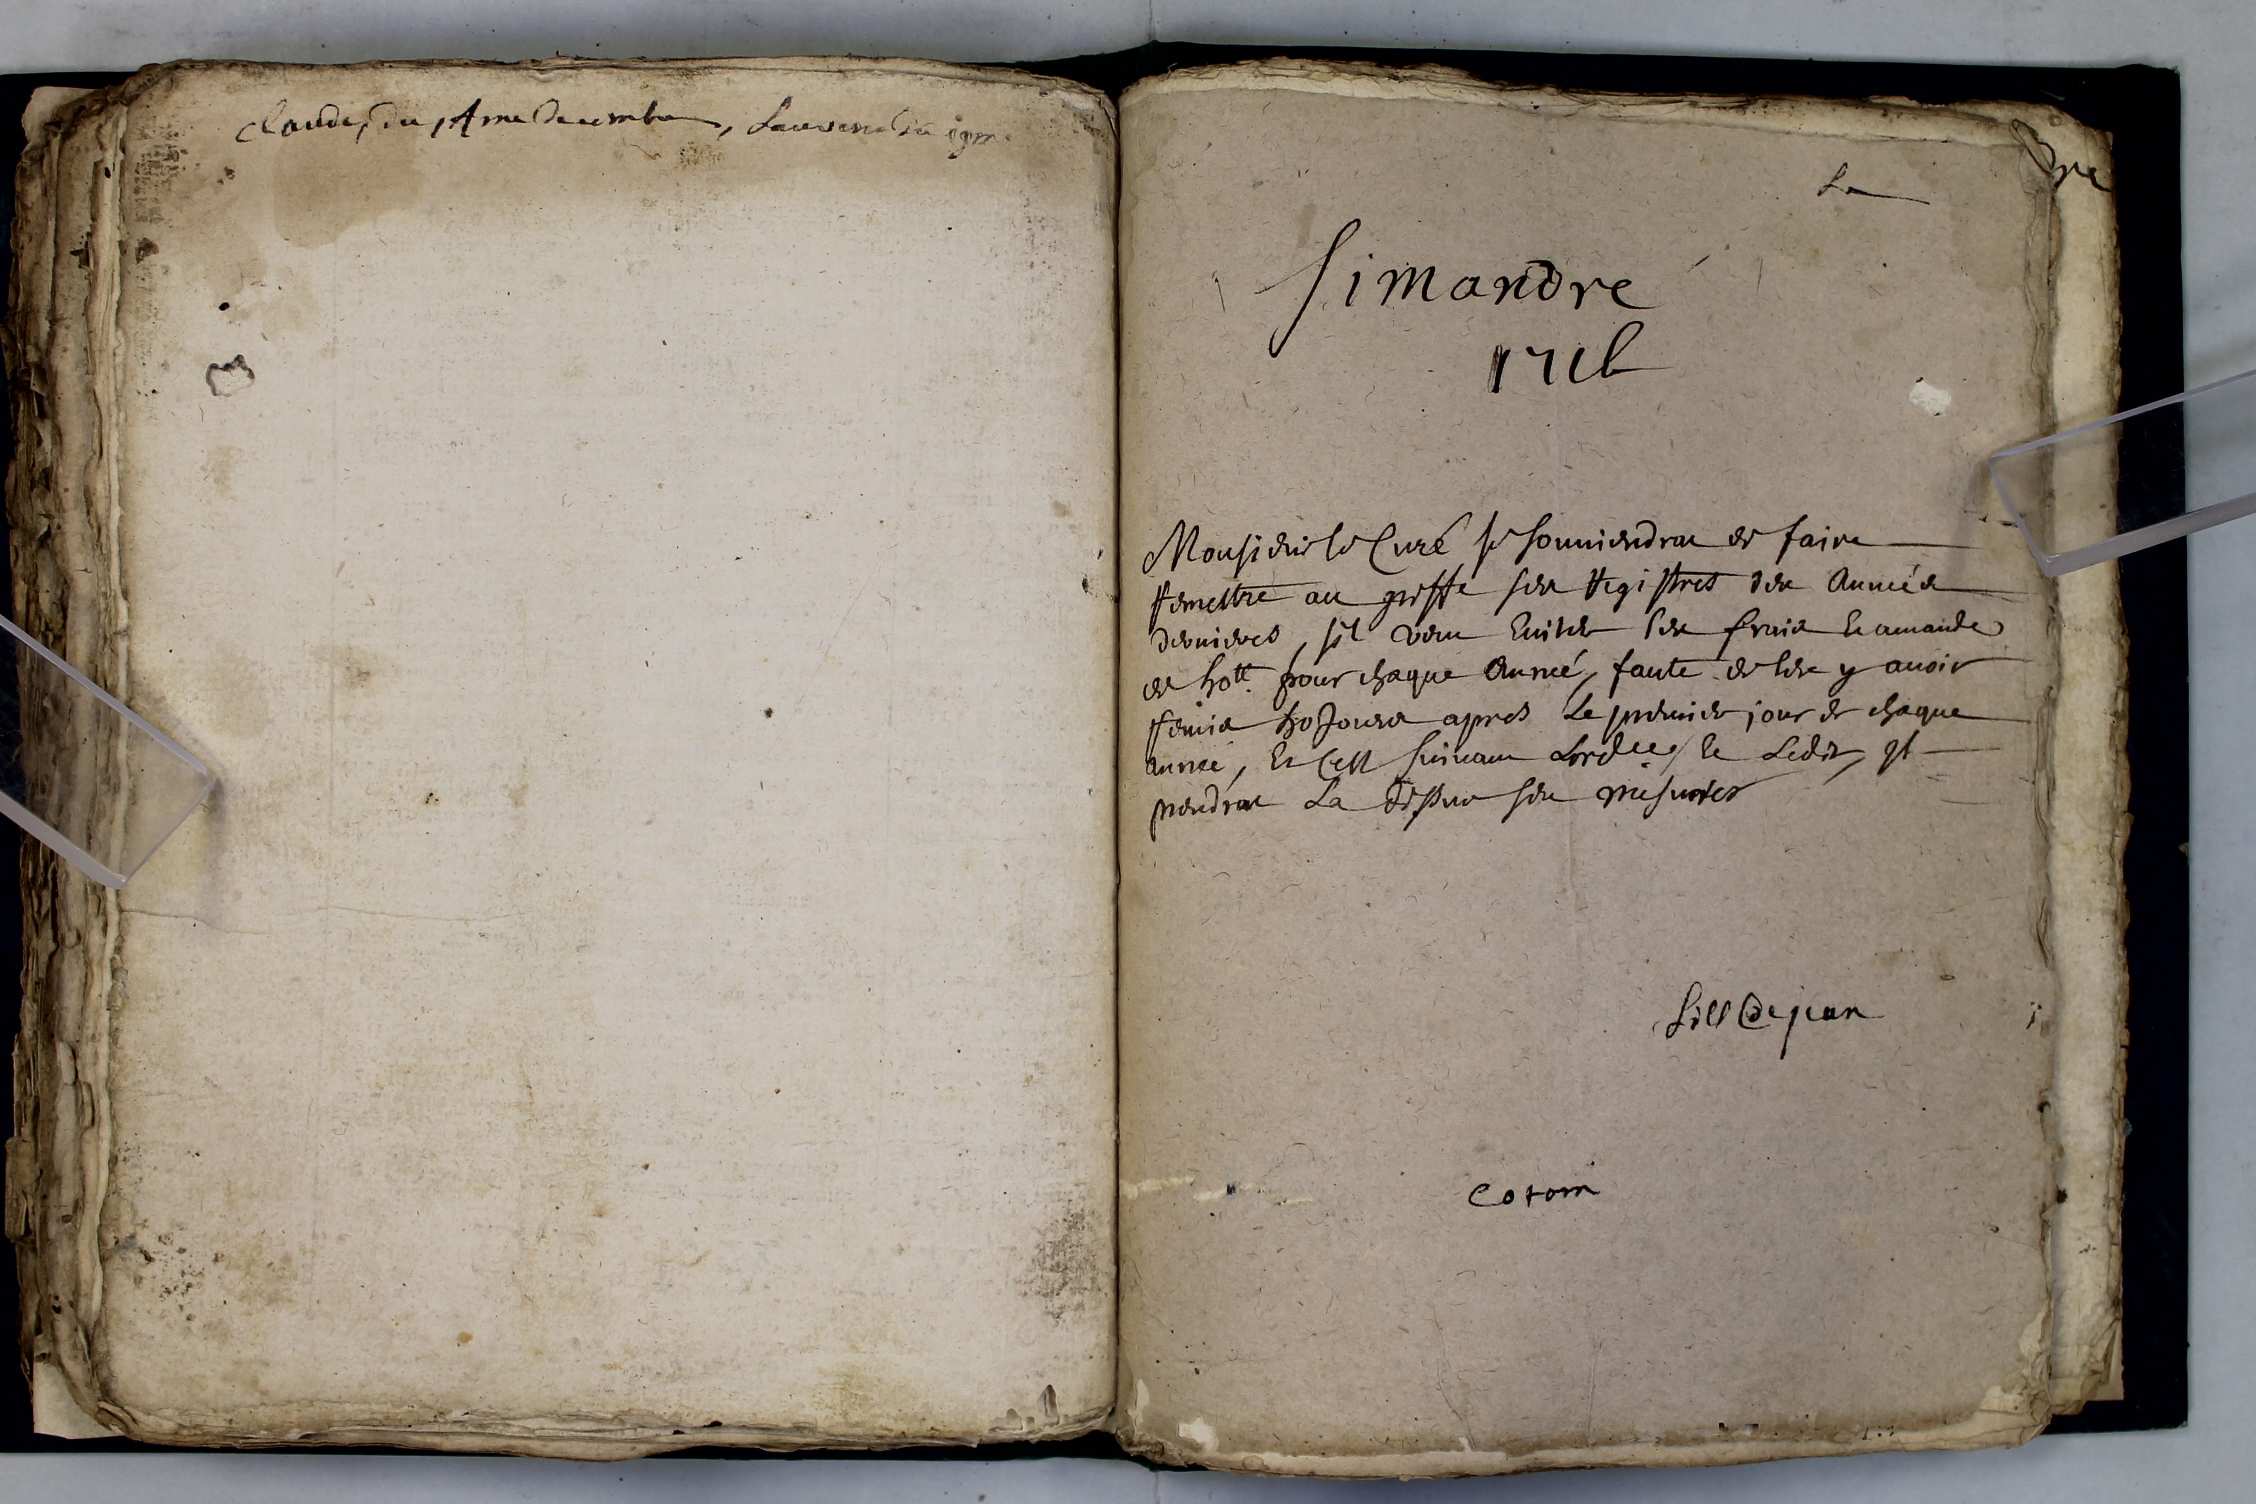 Claude, du, 4me Decembre,
La
Simandre
Monsieur le Curé se souuiendra de faire
Remettre au greffe ses Registres des Année
dernieres, sil veut Euiter les frais Et amande
de 50tt pour chaque Année, faute de les y auoir
Remis apres Le premier jour de chaque
année, Et Cest suiuant Et Ledit, Il
prendra La dessus ses mesures
Dejean